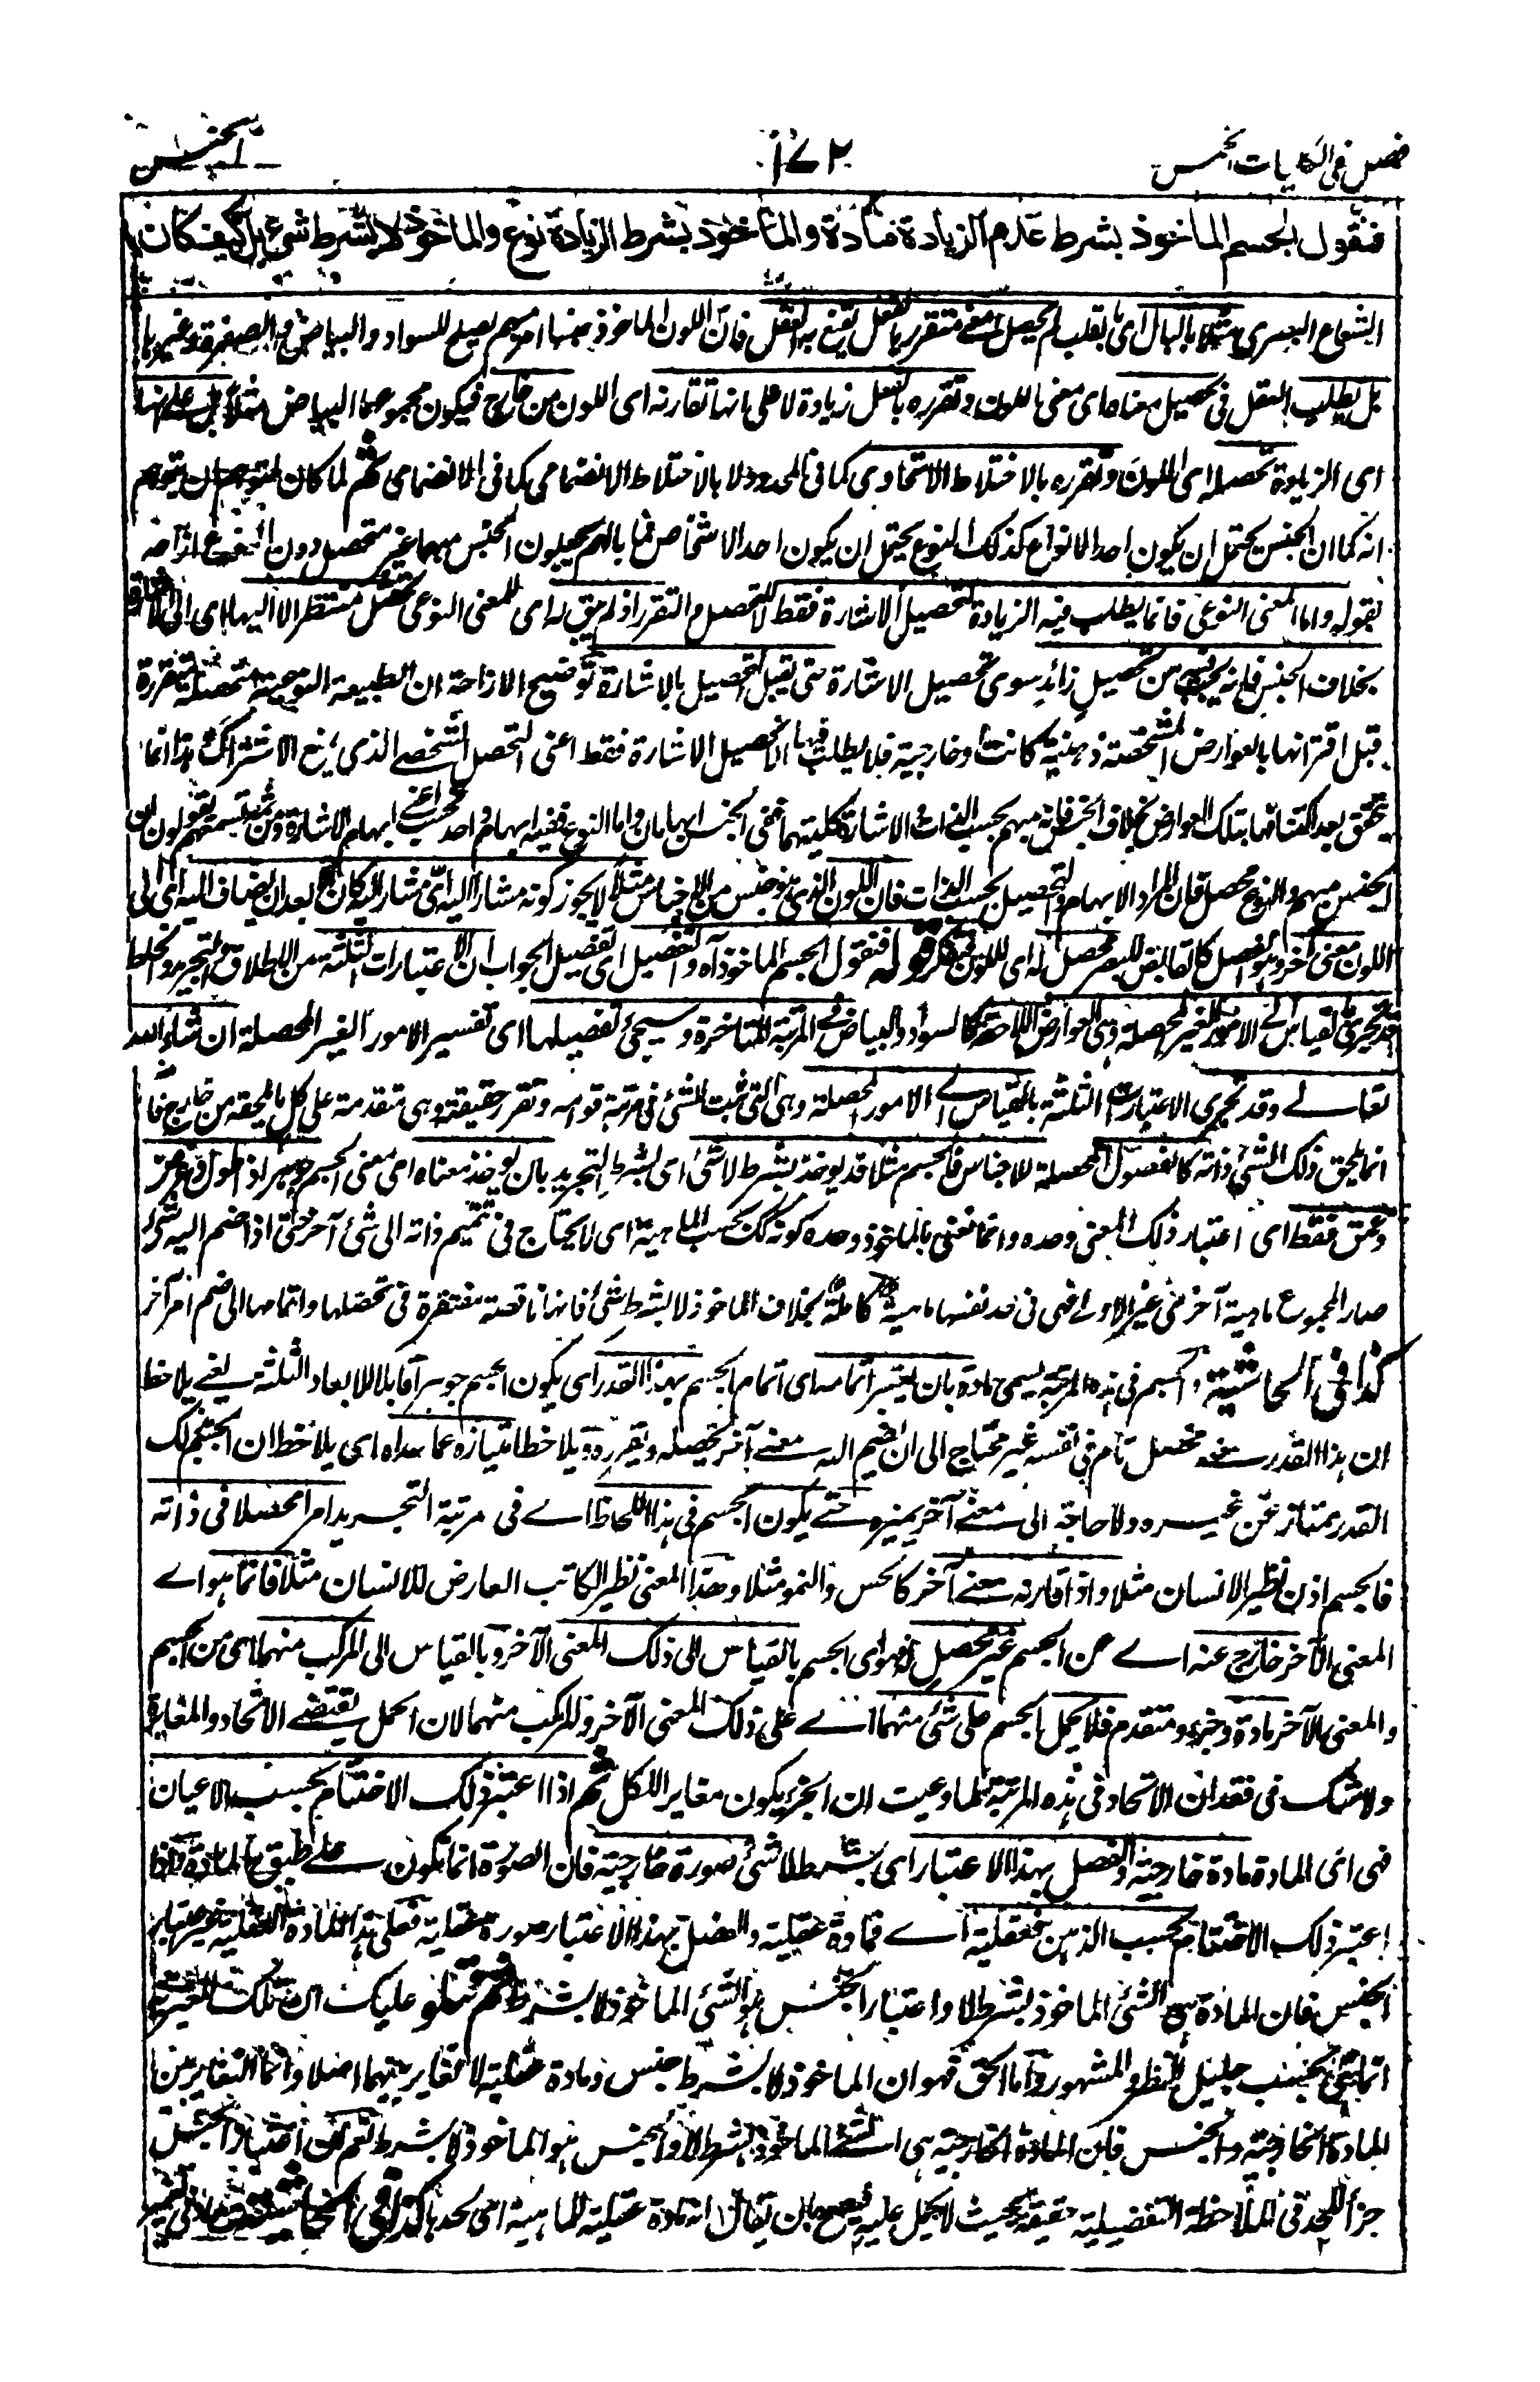 فصل فى الكليات الخمس ١٧٢ الجنس
فنقول الجسم الماخوذ بشرط عدم الزيادة مادة والماخوذ بشرط الزيادة نوع والماخوذ لا بشرط شئ بل كيف كان
الشعاع البصرى مثلا بالبال اى بالقلب لم يحصل معنى متقرر بالفعل يقنع به العقل فان اللون الماخوذ منها امر مبهم يصلح للسواد والبياض والصفرة وغيرها
بل يطلب العقل فى تحصيل معناه اى معنى اللون وتقرره بالفعل زيادة لا على انها تقارنه اى اللون من خارج فيكون مجموعهما البياض مثلا بل على انها
اى الزيادة تحصله اى اللون وتقرره بالاختلاط الاتحادى كما فى المحدود لا بالاختلاط الانضمامى كما فى الانضمامى ثم لما كان لمتوهم ان يتوهم
انه كما ان الجنس يحتمل ان يكون احد الانواع كذلك النوع يحتمل ان يكون احد الاشخاص فما بالهم يجعلون الجنس مبهما غير متحصل دون النوع ازاحه
بقوله واما المعنى النوعى فانما يطلب فيه الزيادة لتحصيل الاشارة فقط لا لتحصل التقرر اذ لم يبق له اى للمعنى النوعى تحصل منتظر الا اليها اى الى الاشارة
بخلاف الجنس فانه من تحصيل زائد سوى تحصيل الاشارة حتى يقبل التحصيل بالاشارة توضيح الازاحة ان الطبيعة النوعية متحصلة متقررة
قبل اقترانها بالعوارض المشخصة ذهنية كانت او خارجية فلا يطلب فيها الا تحصيل الاشارة فقط اعنى التحصل الشخصى الذى يمنع الاشتراك وانما
يتحقق بعد اكتنافها بتلك العوارض بخلاف الجنس فانه مبهم بحسب الذات والاشارة كليتهما ففى الجنس ابهامان واما النوع ففيه ابهام واحد فحسب اعنى ابهام الاشارة ومن ثم تسمعهم يقولون ان
الجنس مبهم والنوع محصل فان المراد الابهام والتحصيل بحسب الذات فان اللون الذى هو جنس من الاجناس مثلا لا يجوز كونه مشارا اليه اى مشار اليه كان الا بعد ان يضاف اليه اى الى
اللون معنى آخر وهو الفصل كالقابض للبصر محصل له اى للون قوله فنقول الجسم الماخوذ آه والتفصيل اى تفصيل الجواب ان الاعتبارات الثلثة من الاطلاق والتجريد والخلط
قد تجرى بالقياس الى الامور الغير المحصلة وهى العوارض اللاحقة كالسواد والبياض فى المرتبة المتاخرة وسيجئ تفصيلها اى تفسير الامور الغير المحصلة ان شاء الله
تعالى وقد تجرى الاعتبارات الثلثة بالقياس الى الامور المحصلة وهى التى تثبت للشئ فى مرتبة قوامه وتقرر حقيقته وهى متقدمة على كل ما يلحقه من خارج
انما يلحق ذلك الشئ ذاته كالفصول المحصلة للاجناس فالجسم مثلا قد يوخذ بشرط لا شئ اى بشرط التجريد بان يوخذ معناه اى معنى الجسم جوهر اذ طول وعرض
وعمق فقط اى اعتبار ذلك المعنى وحده وانما نعنى بالماخوذ وحده كونه كك بحسب الماهية اى لا يحتاج فى تتميم ذاته الى شئ آخر حتى اذا ضم اليه شئ
صار المجموع ماهية آخر غير الاولى فهى فى حد نفسها ماهية كاملة بخلاف الماخوذ لا بشرط شئ فانها ناقصة مفتقرة فى تحصلها واتمامها الى ضم امر آخر
كذا فى الحاشية والجسم فى هذه المرتبة يسمى مادة بان يعتبر اتمامه اى اتمام الجسم بهذا القدر اى يكون الجسم جوهرا قابلا للابعاد الثلثة يعنى يلاحظ
ان هذا القدر معنى محصل تام فى نفسه غير محتاج الى ان ينضم اليه معنى آخر تحصيله وتقرره ويلاحظ امتيازه عما عداه اى يلاحظ ان الجسم بذلك
القدر ممتاز عن غيره ولا حاجة الى معنى آخر يميزه حتى يكون الجسم فى هذا اللحاظ اى فى مرتبة التجريد امرا محصلا فى ذاته
فالجسم اذن نظير الانسان مثلا واذا قارنه معنى آخر كالحس والنمو مثلا وهذا المعنى نظير الكاتب العارض للانسان مثلا فانما هو اى
المعنى الآخر خارج عنه اى عن الجسم غير محصل فهو اى الجسم بالقياس الى ذلك المعنى الآخر وبالقياس الى المركب منهما اى من الجسم
والمعنى الآخر مادة وجزء ومتقدم فلا يحمل الجسم على شئ منهما اى على ذلك المعنى الآخر والمركب منهما لان الحمل يقتضى الاتحاد والمغايرة
ولا شك فى فقدان الاتحاد فى هذه المرتبة لما وعيت ان الجزء يكون مغايرا للكل ثم اذا اعتبر ذلك الاختتام بحسب الاعيان
فهى اى المادة مادة خارجية والفصل بهذا الاعتبار اى بشرط لا شئ صورة خارجية فان الصورة انما تكون على طبق المادة واذا
اعتبر ذلك الاختتام بحسب الذهن فعقلية اى فمادة عقلية والفصل بهذا الاعتبار صورة عقلية فعلى هذا المادة العقلية غير
الجنس فان المادة هى الشئ الماخوذ بشرط لا واعتبار الجنس هو الشئ الماخوذ لا بشرط ثم نتلو عليك ان تلك الغيرية
انما هى بحسب جليل النظر والمشهور واما الحق فهو ان الماخوذ لا بشرط جنس ومادة عقلية لا تغاير بينهما اصلا وانما التغاير بين
المادة الخارجية والجنس فان المادة الخارجية هى الشئ الماخوذ بشرط لا والجنس هو الماخوذ لا بشرط نعم ان اعتبار الجنس
جزأ للحد فى الملاحظة التفصيلية حقيقة بحيث لا يحمل عليه يصح بان يقال انه مادة عقلية للماهية اى لحدها كذا فى الحاشية